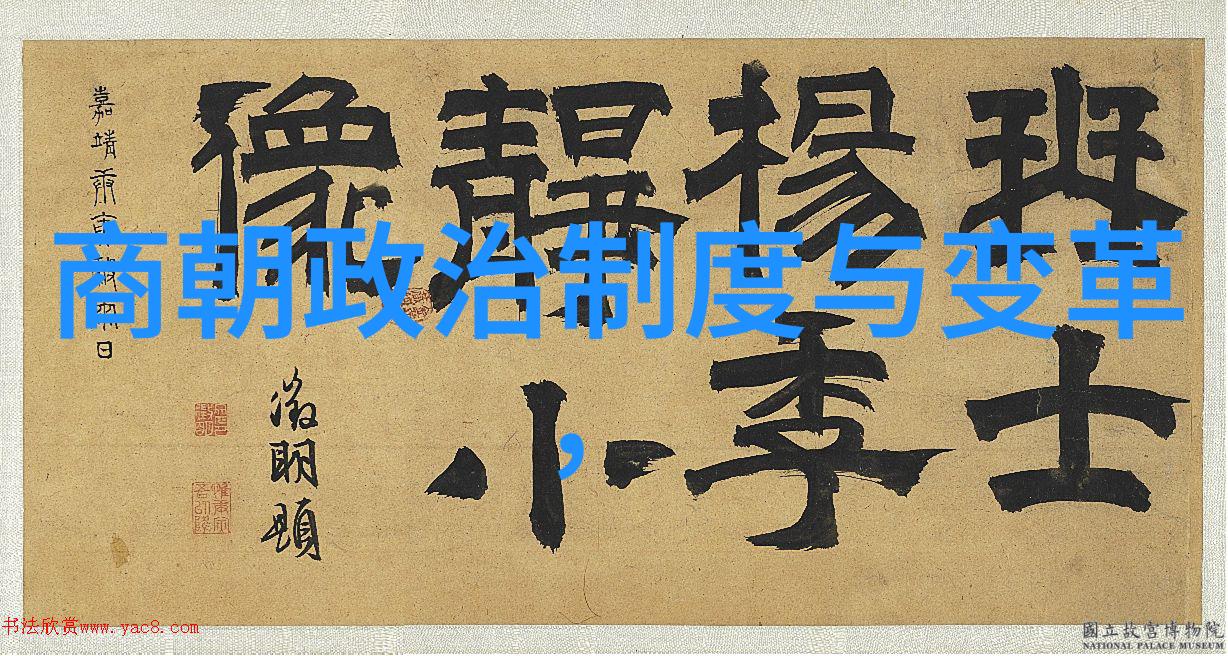 商朝政治制度与变革
,
士
楊季
靜小
像
徵明題
嘉靖庚寅
日
书法欣赏www.yac8.com
國立故宮博物院
NATIONAL PALACE MUSEUM